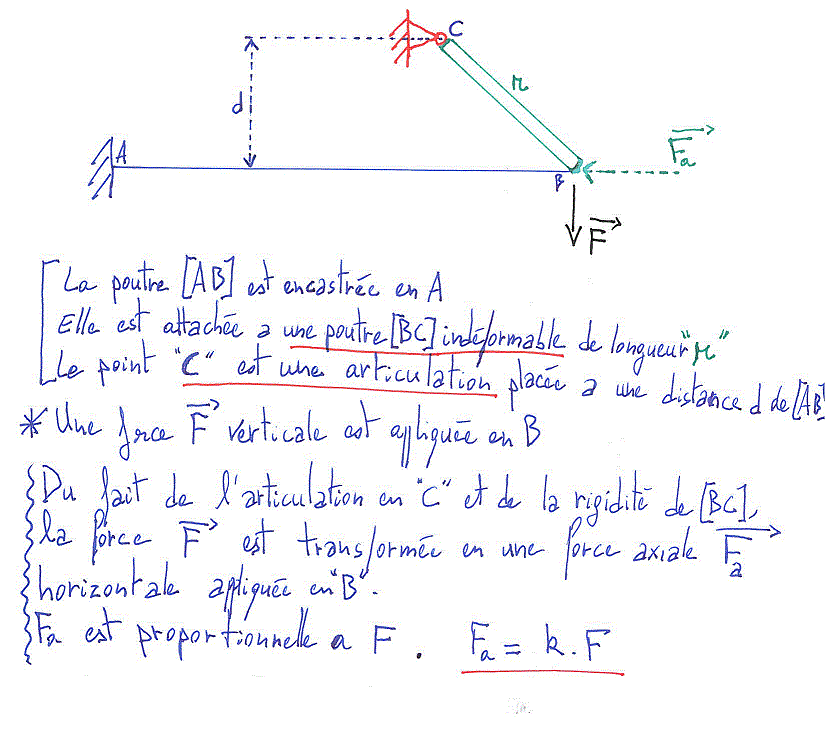 C
r
d
A
B
Fa
F
La poutre [AB] est encastrée en A
Elle est attachée a une poutre [BC] indéformable de longueur "r"
Le point "C" est une articulation placée a une distance d de [AB]
* Une force F verticale est appliquée en B
Du fait de l'articulation en "C" et de la rigidité de [BC],
la force F est transformée en une force axiale Fa
horizontale appliquée en "B".
Fa est proportionnelle a F. Fa = k.F